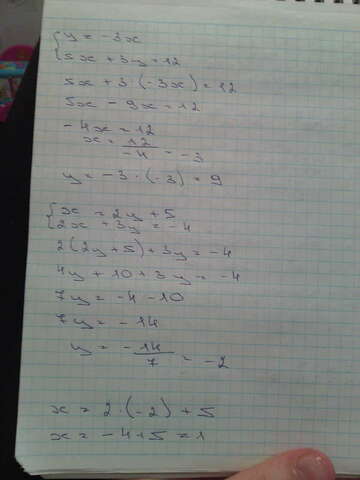 {y = -3x
{5x + 3y = 12
5x + 3·(-3x) = 12
5x - 9x = 12
-4x = 12
x = 12/-4 = -3
y = -3·(-3) = 9
{x = 2y + 5
{2x + 3y = -4
2(2y + 5) + 3y = -4
4y + 10 + 3y = -4
7y = -4 - 10
7y = -14
y = -14/7 = -2
x = 2·(-2) + 5
x = -4 + 5 = 1